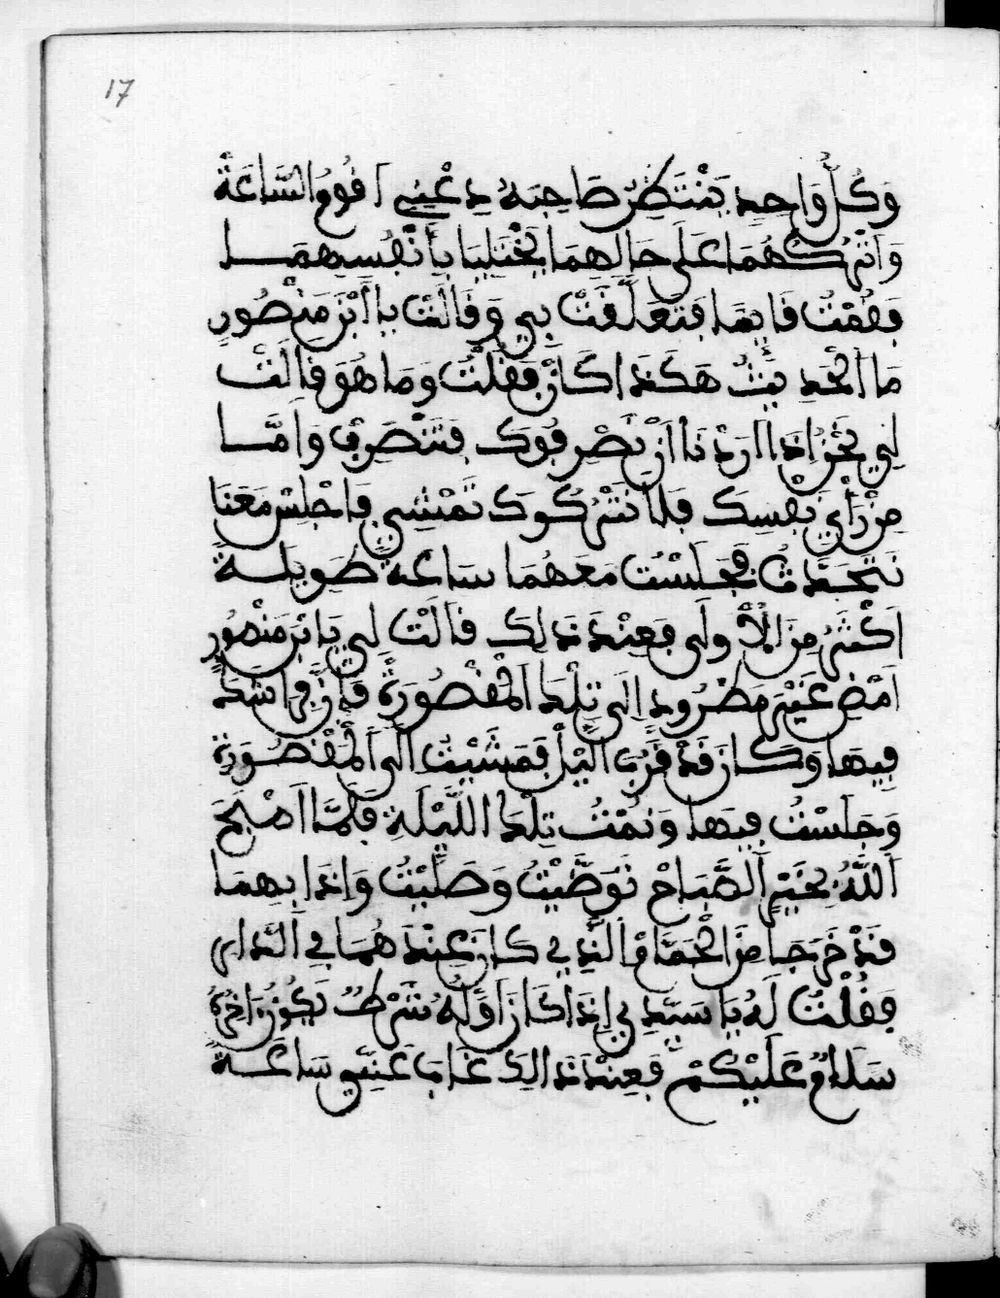 17
وَكُلُّ وَاحِدٍ يَنْتَظِرُ صَاحِبَهُ دِعْنِي اقُومُ السَّاعَةَ
وَاتْرُكُهُمَا عَلَى حَالِهِمَا يَخْتَلِيَا بِأَنْفُسِهِمَا
فَقُمْتُ قَايِمًا فَتَعَلَّقَتْ بِي وَقَالَتْ يَا ابْنَ مَنْصُورٍ
مَا الْحَدِيثُ هَكَذَا كَانْ فَقُلْتُ وَمَا هُوَ قَالَتْ
لِي نَحْنُ اذَا ارَدْنَا انْ نَصْرِفُوكَ فَتَنْصَرِفْ وَامَّا
مِنْ رَأْيِ نَفْسِكَ فَلَا نَتْرُكُوكَ تَمْشِي فَاجْلِسْ مَعَنَا
نَتَحَدَّثُ فَجَلَسْتُ مَعَهُمَا سَاعَةً طَوِيلَةً
اكْثَرُ مِنَ الْأُولَى فَعِنْدَ ذَلِكَ قَالَتْ لِي يَا بْنَ مَنْصُورٍ
امْضِ غَيْرَ مَطْرُودٍ الَى تِلْكَ الْمَقْصُورَةِ فَارْقَاشَكَ
فِيهَا وَكَانَ قَدْ قَرُبَ الَّيْلُ فَمَشَيْتُ الَى الْمَقْصُورَةِ
وَجَلَسْتُ فِيهَا وَنُمْتُ تِلْكَ اللَّيْلَةِ فَلَمَّا اصْبَحَ
اللَّهُ بِخَيْرِ الصَّبَاحْ تَوَضَّيْتُ وَصَلَّيْتُ وَاذَا بِهِمَا
قَدْ خَرَجَا مِنَ الْحَمَّامْ الَّذِي كَانَ عِنْدَهُمَا فِي الدَّارِ
فَقُلْتُ لَهُ يَا سَيِّدِي اذَا كَانَ اوَّلُهُ شَرْطٌ يَكُونُ اخِرُهُ
سَلَامٌ عَلَيْكُمْ فَعِنْدَ ذَالِكَ غَابَ عَنِّي سَاعَةً